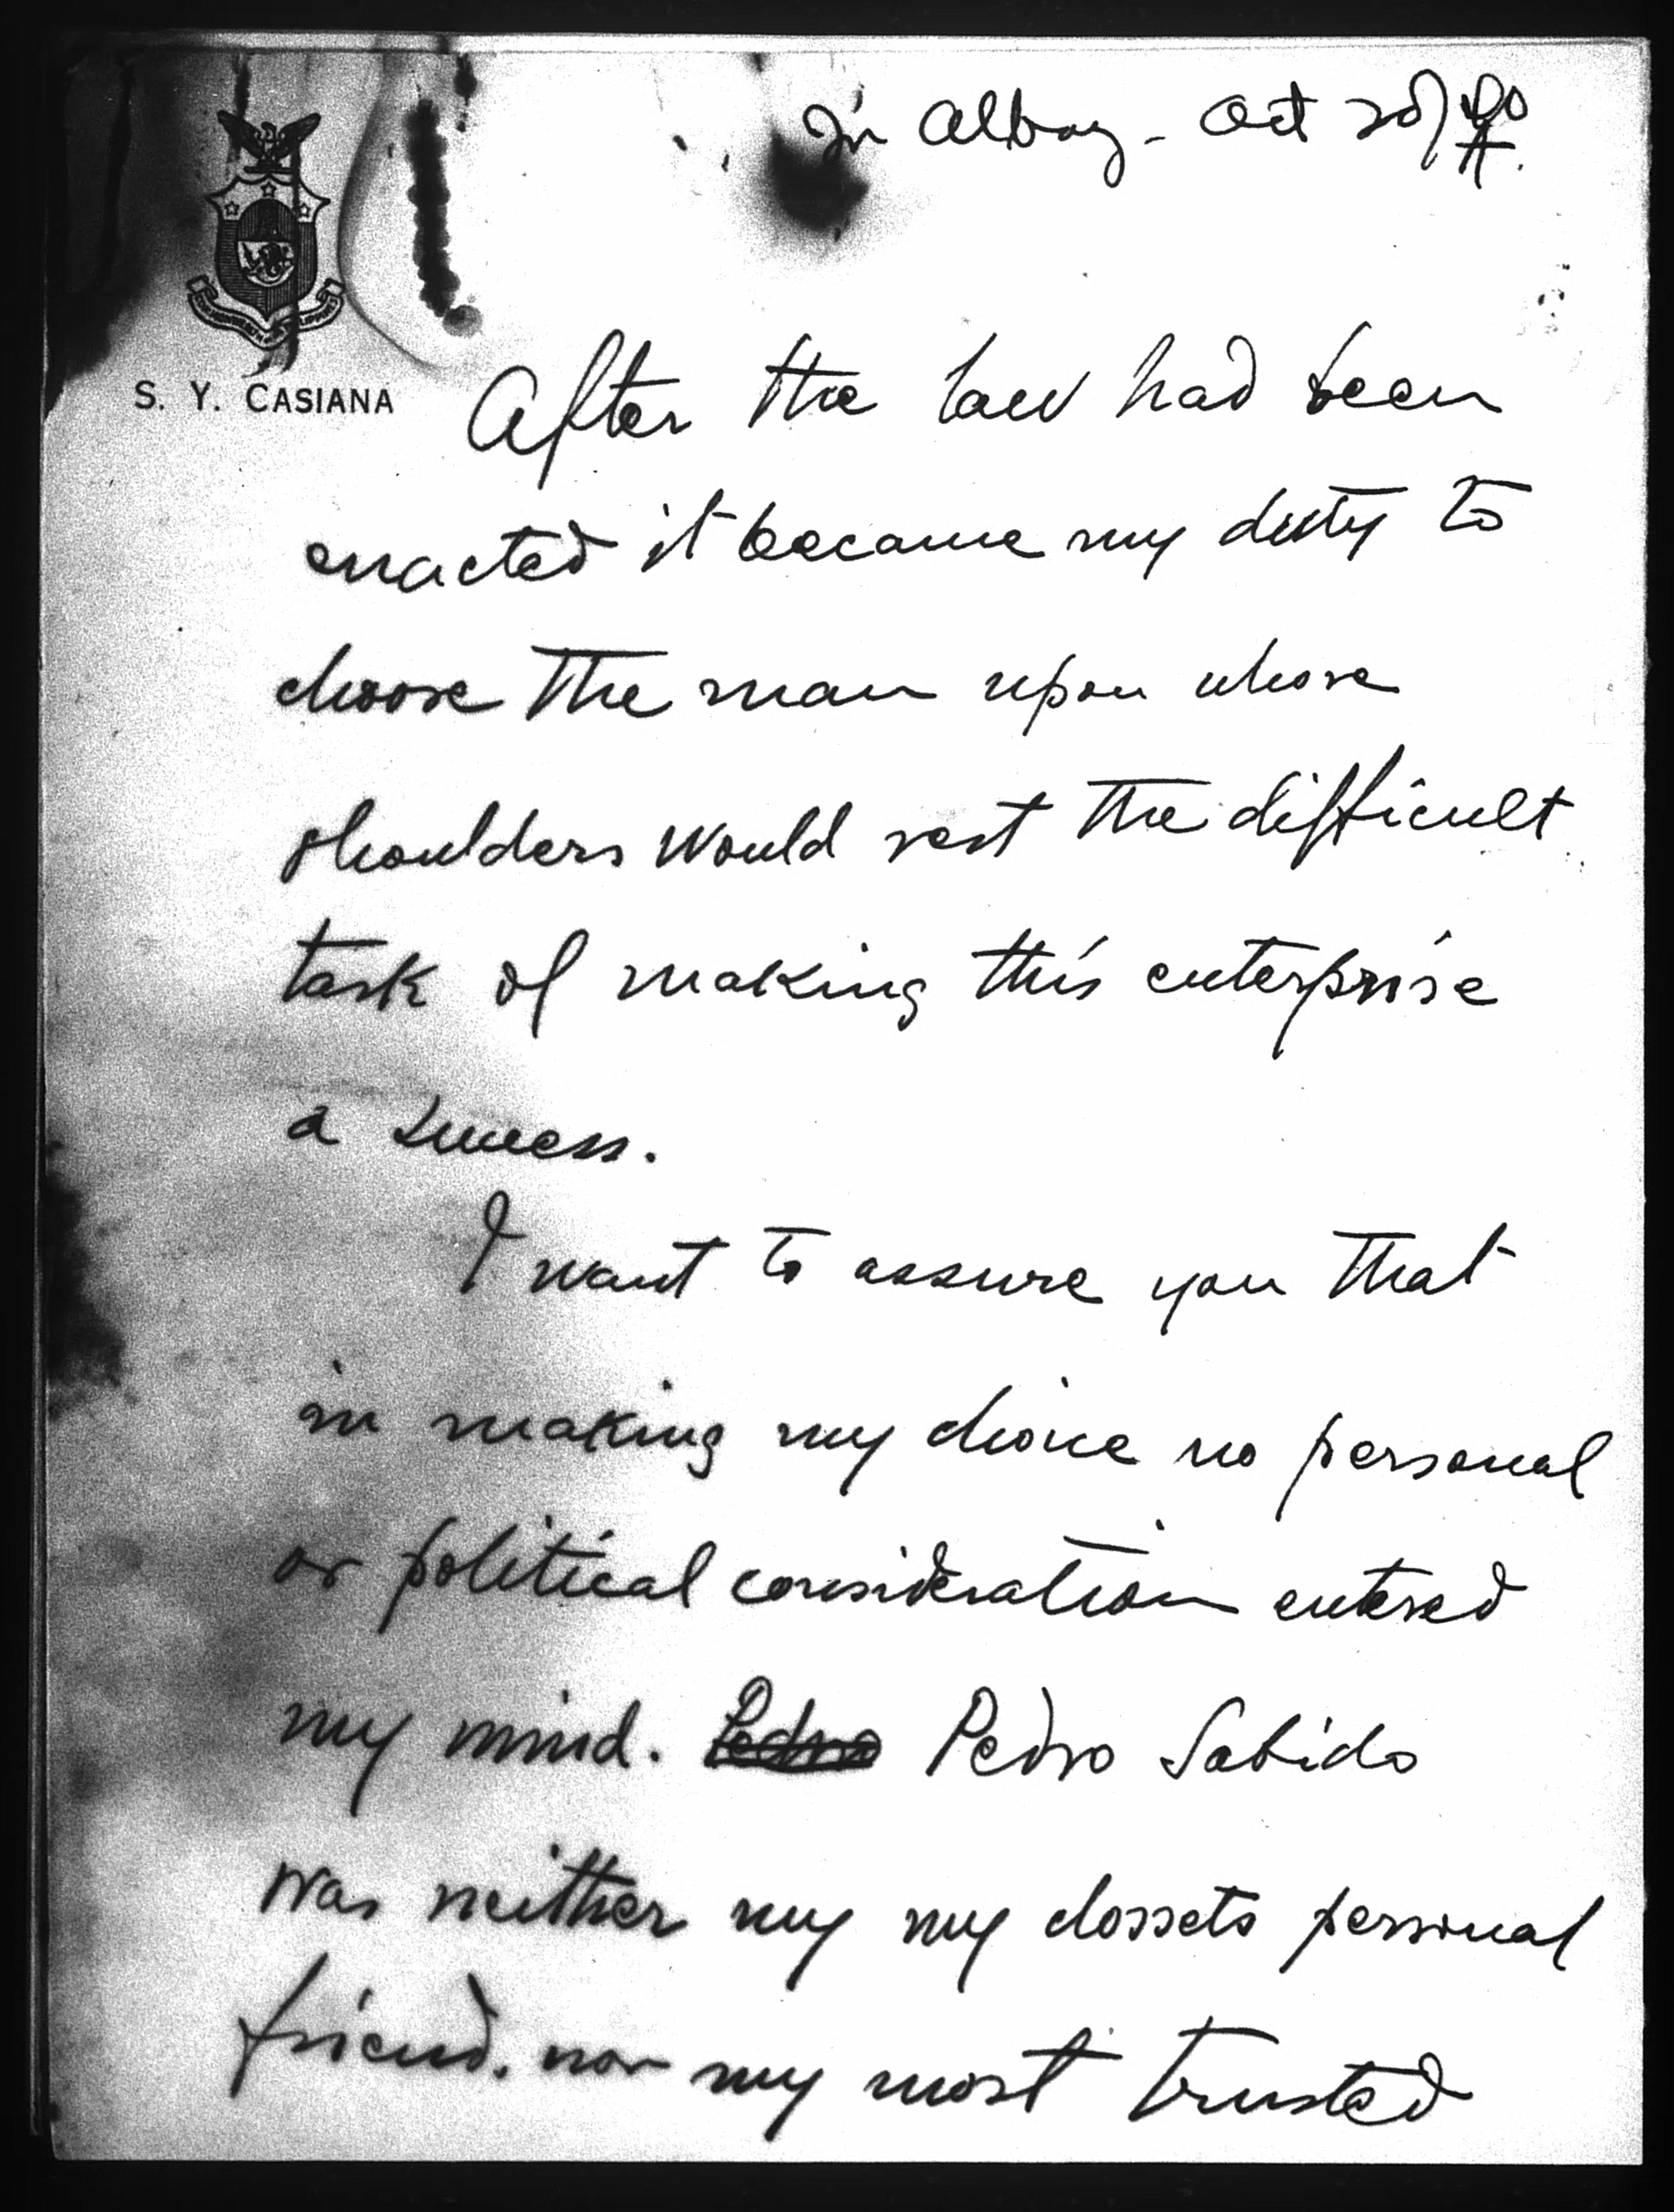 In Albay - Oct 20/40
S. Y. CASIANA
After the law had been
enacted it became my duty to
choose the man upon whose
shoulders would rest the difficult
task of making this enterprise
a success.
I want to assure you that
in making my choice no personal
or political consideration entered
my mind. Pedro Pedro Sabido
was neither my my clossets personal
friend, nor my most trusted